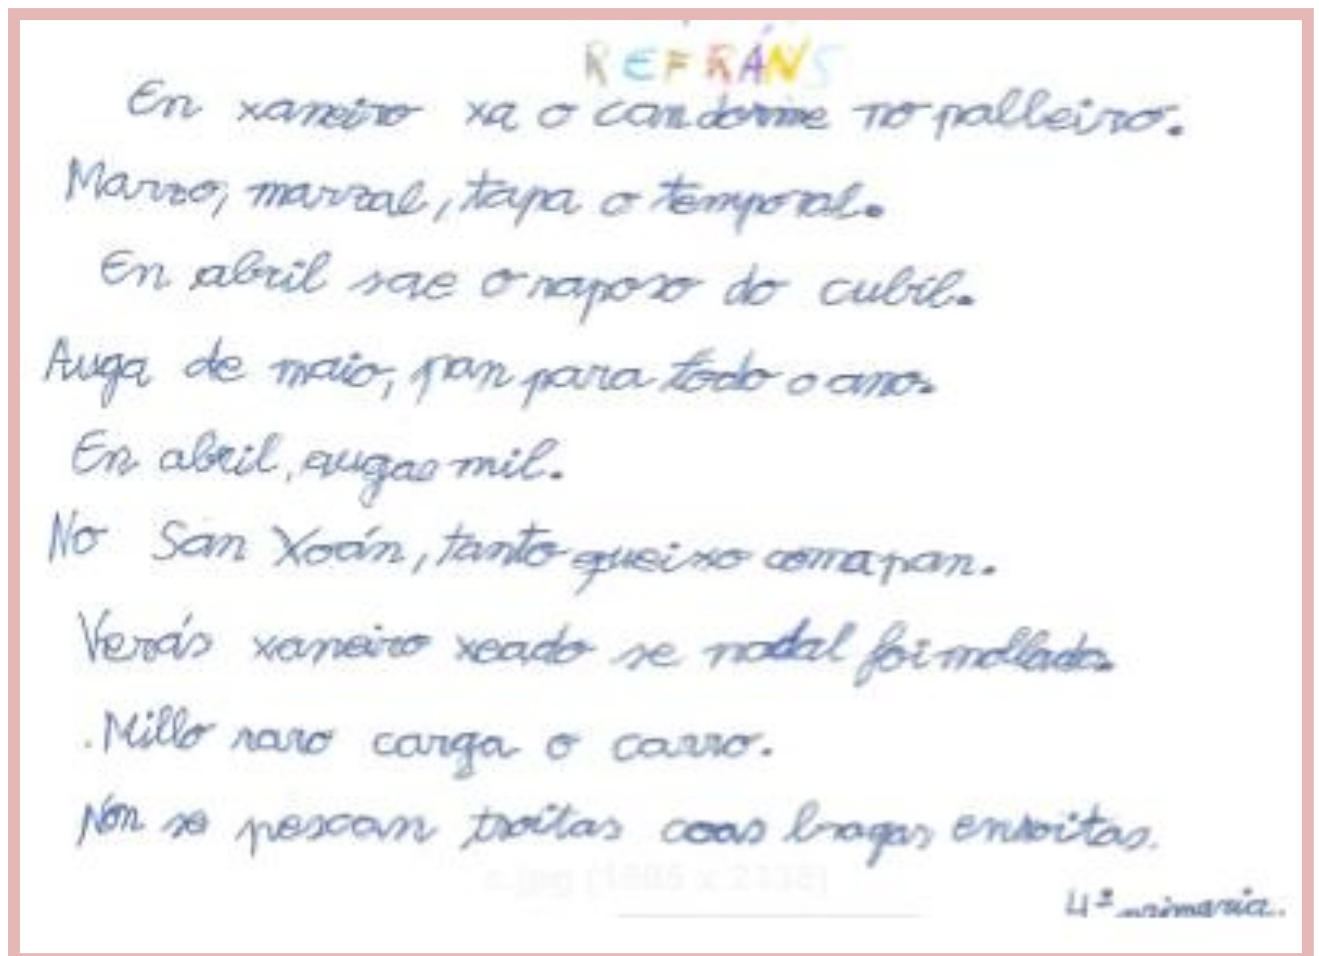 REFRÁNS
En xaneiro xa o can dorme no palleiro.
Marzo, marzal, tapa o temporal.
En abril sae o raposo do cubil.
Auga de maio, pan para todo o ano.
En abril, augas mil.
No San Xoán, tanto queixo coma pan.
Verás xaneiro xeado se nadal foi mollado.
.Millo raro carga o carro.
Non se pescan troitas coas bragas enxoitas.
c.jpg
4º primaria.